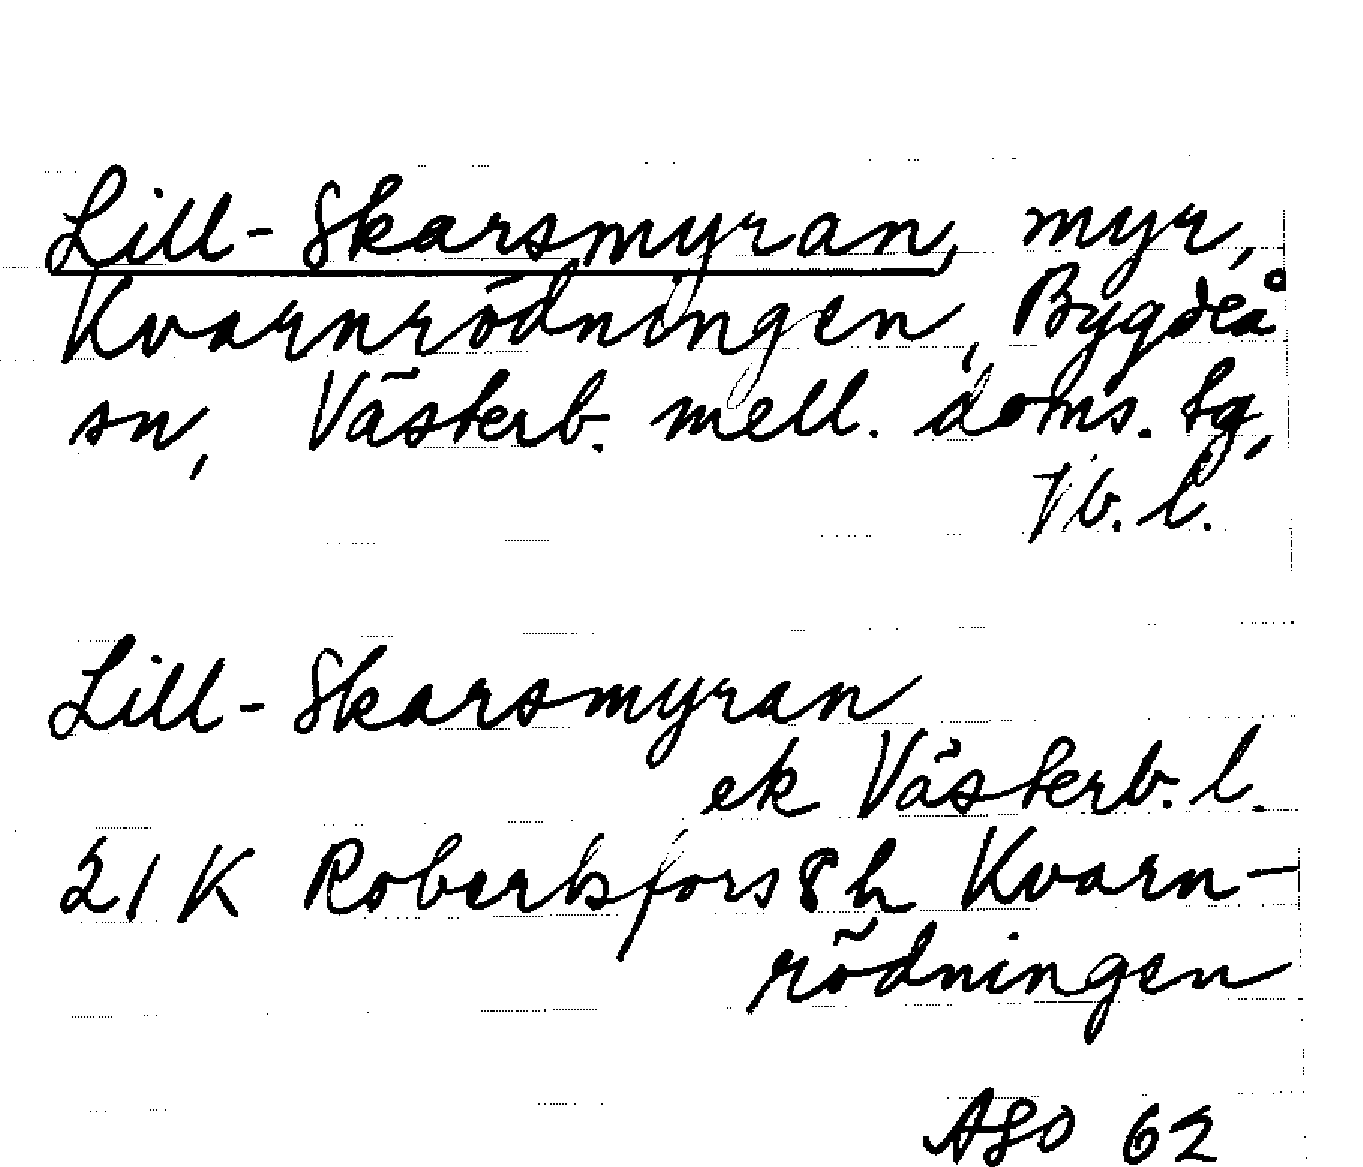 Lill-Skarsmyran, myr,
Kvarnrödningen, Bygdeå
sn, Västerb. mell. doms. tg,
Vb. l.
Lill-Skarsmyran
ek Västerb. l.
21 K Robertsfors 8h Kvarn-
rödningen
ASO 62